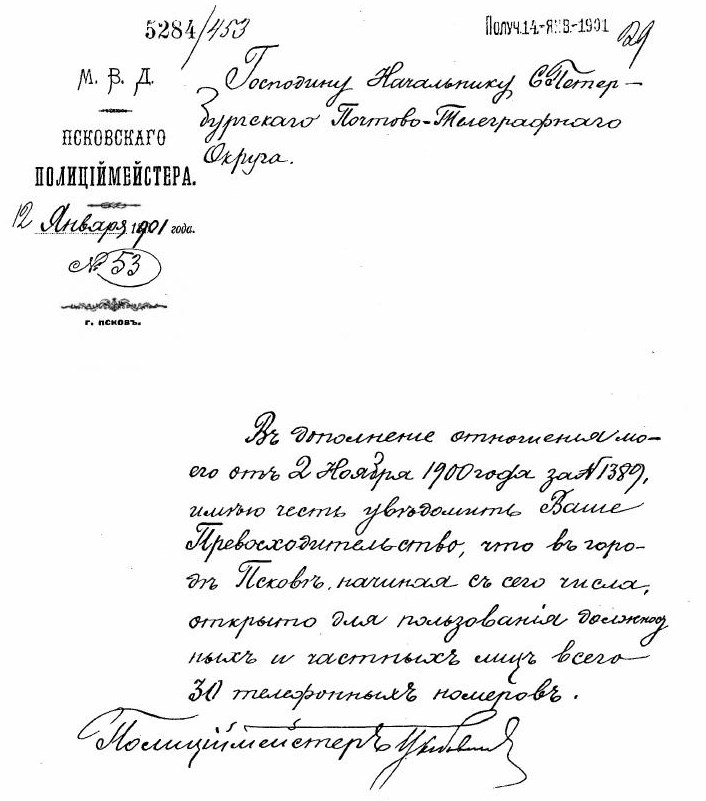 5284/453
Получ. 14-ЯНВ.-1901
29
М. В. Д.
ПСКОВСКАГО
ПОЛИЦІЙМЕЙСТЕРА.
12 Января 1901 года.
№ 53
Г. ПСКОВЪ.
Господину Начальнику СПетер-
бургскаго Почтово-Телеграфнаго
Округа.
Въ дополненіе отношенія мо-
его отъ 2 Ноября 1900 года за № 1389,
имѣю честь увѣдомить Ваше
Превосходительство, что въ горо-
дѣ Псковѣ, начиная съ сего числа,
открыто для пользованія должност
ныхъ и частныхъ лицъ всего
30 телефонныхъ номеровъ.
Полиціймейстеръ